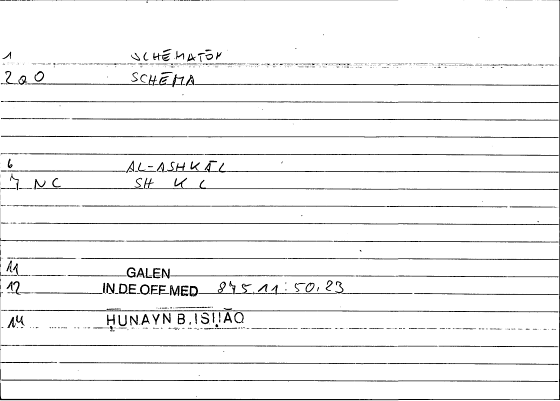 1 SCHĒMATŌN
2 a 0 SCHĒMA
6 AL-ASHKĀL
7 NC SH K L
11 GALEN
12 IN DE OFF MED 875.11:50,23
14 ḤUNAYN B. ISḤĀQ